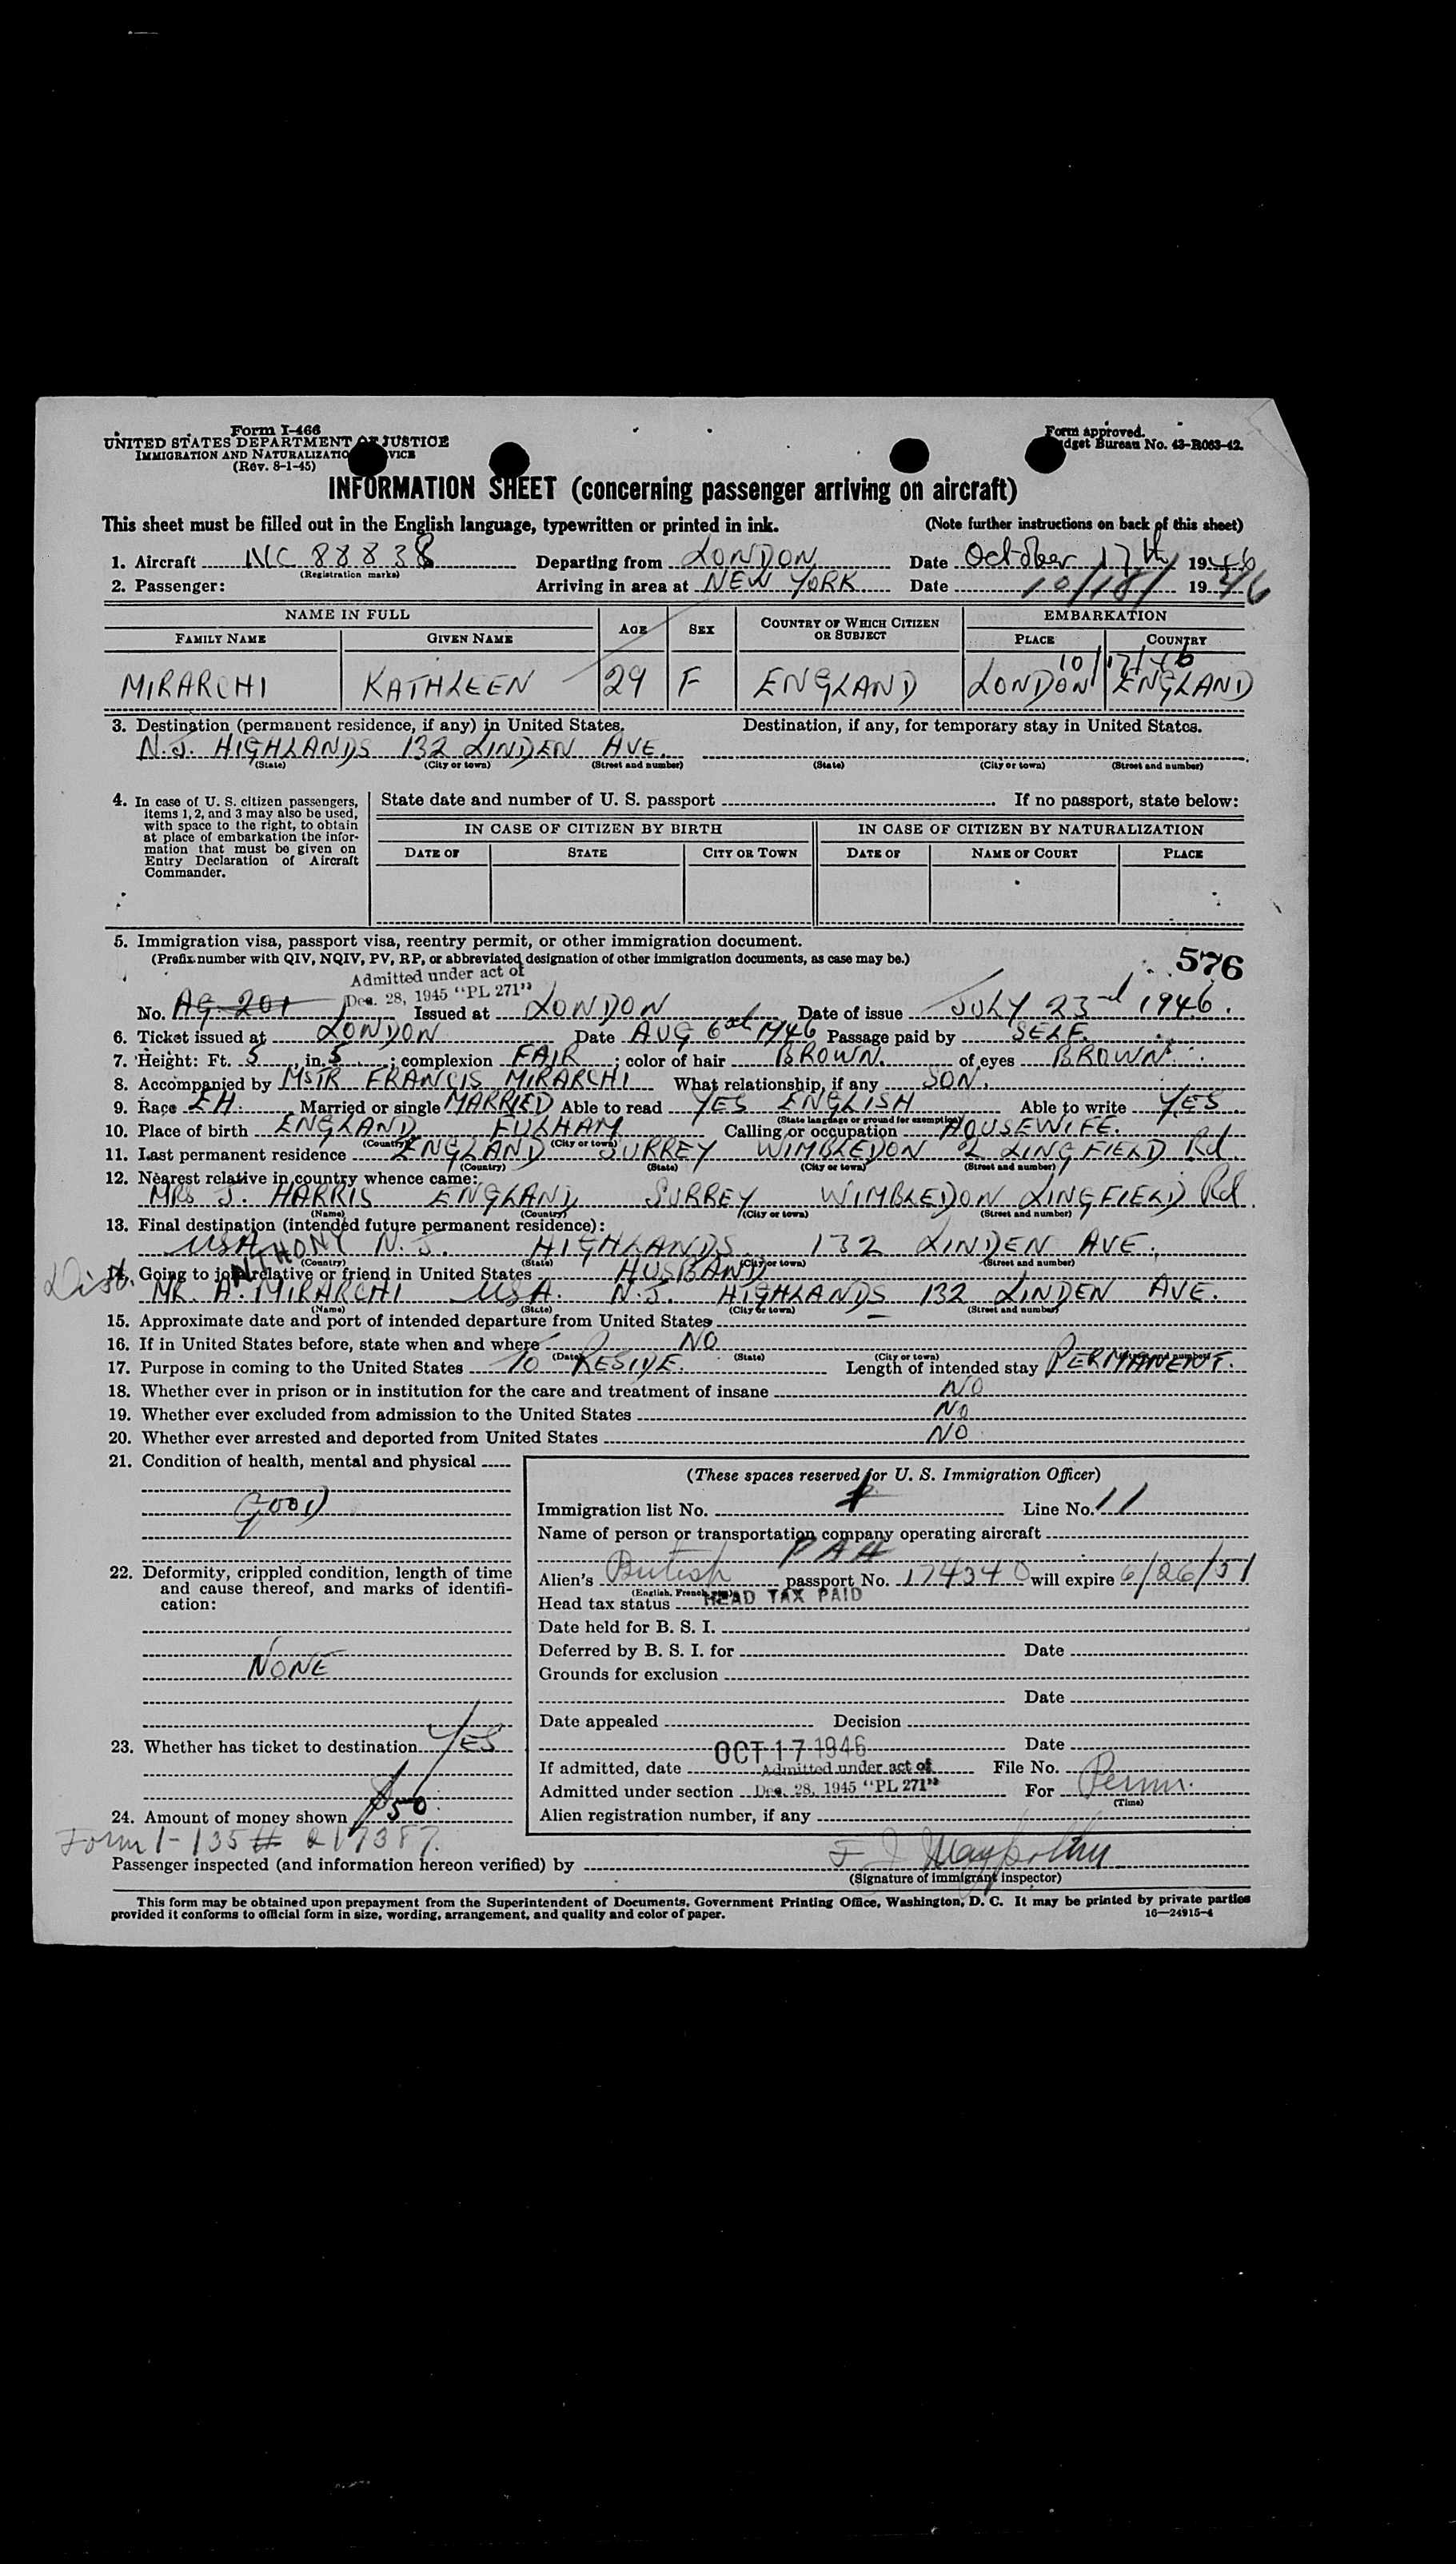 Form I-466
UNITED STATES DEPARTMENT OF JUSTICE
IMMIGRATION AND NATURALIZATIO VICE
(Rev. 8-1-45)
Form approved.
dget Bureau No. 43-R063-42.
INFORMATION SHEET (concerning passenger arriving on aircraft)
This sheet must be filled out in the English language, typewritten or printed in ink. (Note further instructions on back of this sheet)
1. Aircraft NC 88838 Departing from LONDON Date October 17th 1946
(Registration marks)
2. Passenger: Arriving in area at NEW YORK Date 10/18/ 1946
NAME IN FULL AGE SEX COUNTRY OF WHICH CITIZEN OR SUBJECT EMBARKATION
FAMILY NAME GIVEN NAME PLACE COUNTRY
10/17/46
MIRARCHI KATHLEEN 29 F ENGLAND LONDON ENGLAND
3. Destination (permanent residence, if any) in United States. Destination, if any, for temporary stay in United States.
N.J. HIGHLANDS 132 LINDEN AVE.
(State) (City or town) (Street and number) (State) (City or town) (Street and number)
4. In case of U. S. citizen passengers, items 1, 2, and 3 may also be used, with space to the right, to obtain at place of embarkation the information that must be given on Entry Declaration of Aircraft Commander.
State date and number of U. S. passport If no passport, state below:
IN CASE OF CITIZEN BY BIRTH IN CASE OF CITIZEN BY NATURALIZATION
DATE OF STATE CITY OR TOWN DATE OF NAME OF COURT PLACE
5. Immigration visa, passport visa, reentry permit, or other immigration document.
(Prefix number with QIV, NQIV, PV, RP, or abbreviated designation of other immigration documents, as case may be.)
576
Admitted under act of
Dec. 28, 1945 "PL 271"
No. AG-201 Issued at LONDON Date of issue JULY 23rd 1946.
6. Ticket issued at LONDON Date AUG 6th 1946 Passage paid by SELF.
7. Height: Ft. 5 in. 5 ; complexion FAIR ; color of hair BROWN. of eyes BROWN
8. Accompanied by MSTR FRANCIS MIRARCHI What relationship, if any SON.
9. Race EH. Married or single MARRIED Able to read YES ENGLISH Able to write YES
(State language or ground for exemption)
10. Place of birth ENGLAND FULHAM Calling or occupation HOUSEWIFE.
(Country) (City or town)
11. Last permanent residence ENGLAND SURREY WIMBLEDON 2 LINGFIELD Rd.
(Country) (State) (City or town) (Street and number)
12. Nearest relative in country whence came:
MRS J. HARRIS ENGLAND SURREY WIMBLEDON LINGFIELD Rd.
(Name) (Country) (City or town) (Street and number)
13. Final destination (intended future permanent residence):
USA N.J. HIGHLANDS 132 LINDEN AVE.
(Country) (State) (City or town) (Street and number)
ANTHONY
Dist. 14. Going to join relative or friend in United States HUSBAND
MR. A. MIRARCHI USA. N.J. HIGHLANDS 132 LINDEN AVE.
(Name) (State) (City or town) (Street and number)
15. Approximate date and port of intended departure from United States
16. If in United States before, state when and where NO
(Date) (State) (City or town) (Street and number)
17. Purpose in coming to the United States TO RESIDE. Length of intended stay PERMANENT.
18. Whether ever in prison or in institution for the care and treatment of insane NO
19. Whether ever excluded from admission to the United States NO
20. Whether ever arrested and deported from United States NO
21. Condition of health, mental and physical
GOOD
22. Deformity, crippled condition, length of time and cause thereof, and marks of identification:
NONE
23. Whether has ticket to destination YES
24. Amount of money shown $50.
(These spaces reserved for U. S. Immigration Officer)
Immigration list No. Line No. 11
Name of person or transportation company operating aircraft
PAA
Alien's British passport No. 174340 will expire 6/26/51
Head tax status HEAD TAX PAID
Date held for B. S. I.
Deferred by B. S. I. for Date
Grounds for exclusion
Date
Date appealed Decision
Date
OCT 17 1946
If admitted, date File No.
Admitted under act of
Admitted under section Dec. 28, 1945 "PL 271" For Perm.
(Time)
Alien registration number, if any
Form I-135 # 217387.
Passenger inspected (and information hereon verified) by
(Signature of immigrant inspector)
This form may be obtained upon prepayment from the Superintendent of Documents, Government Printing Office, Washington, D. C. It may be printed by private parties
provided it conforms to official form in size, wording, arrangement, and quality and color of paper. 16—24915-4